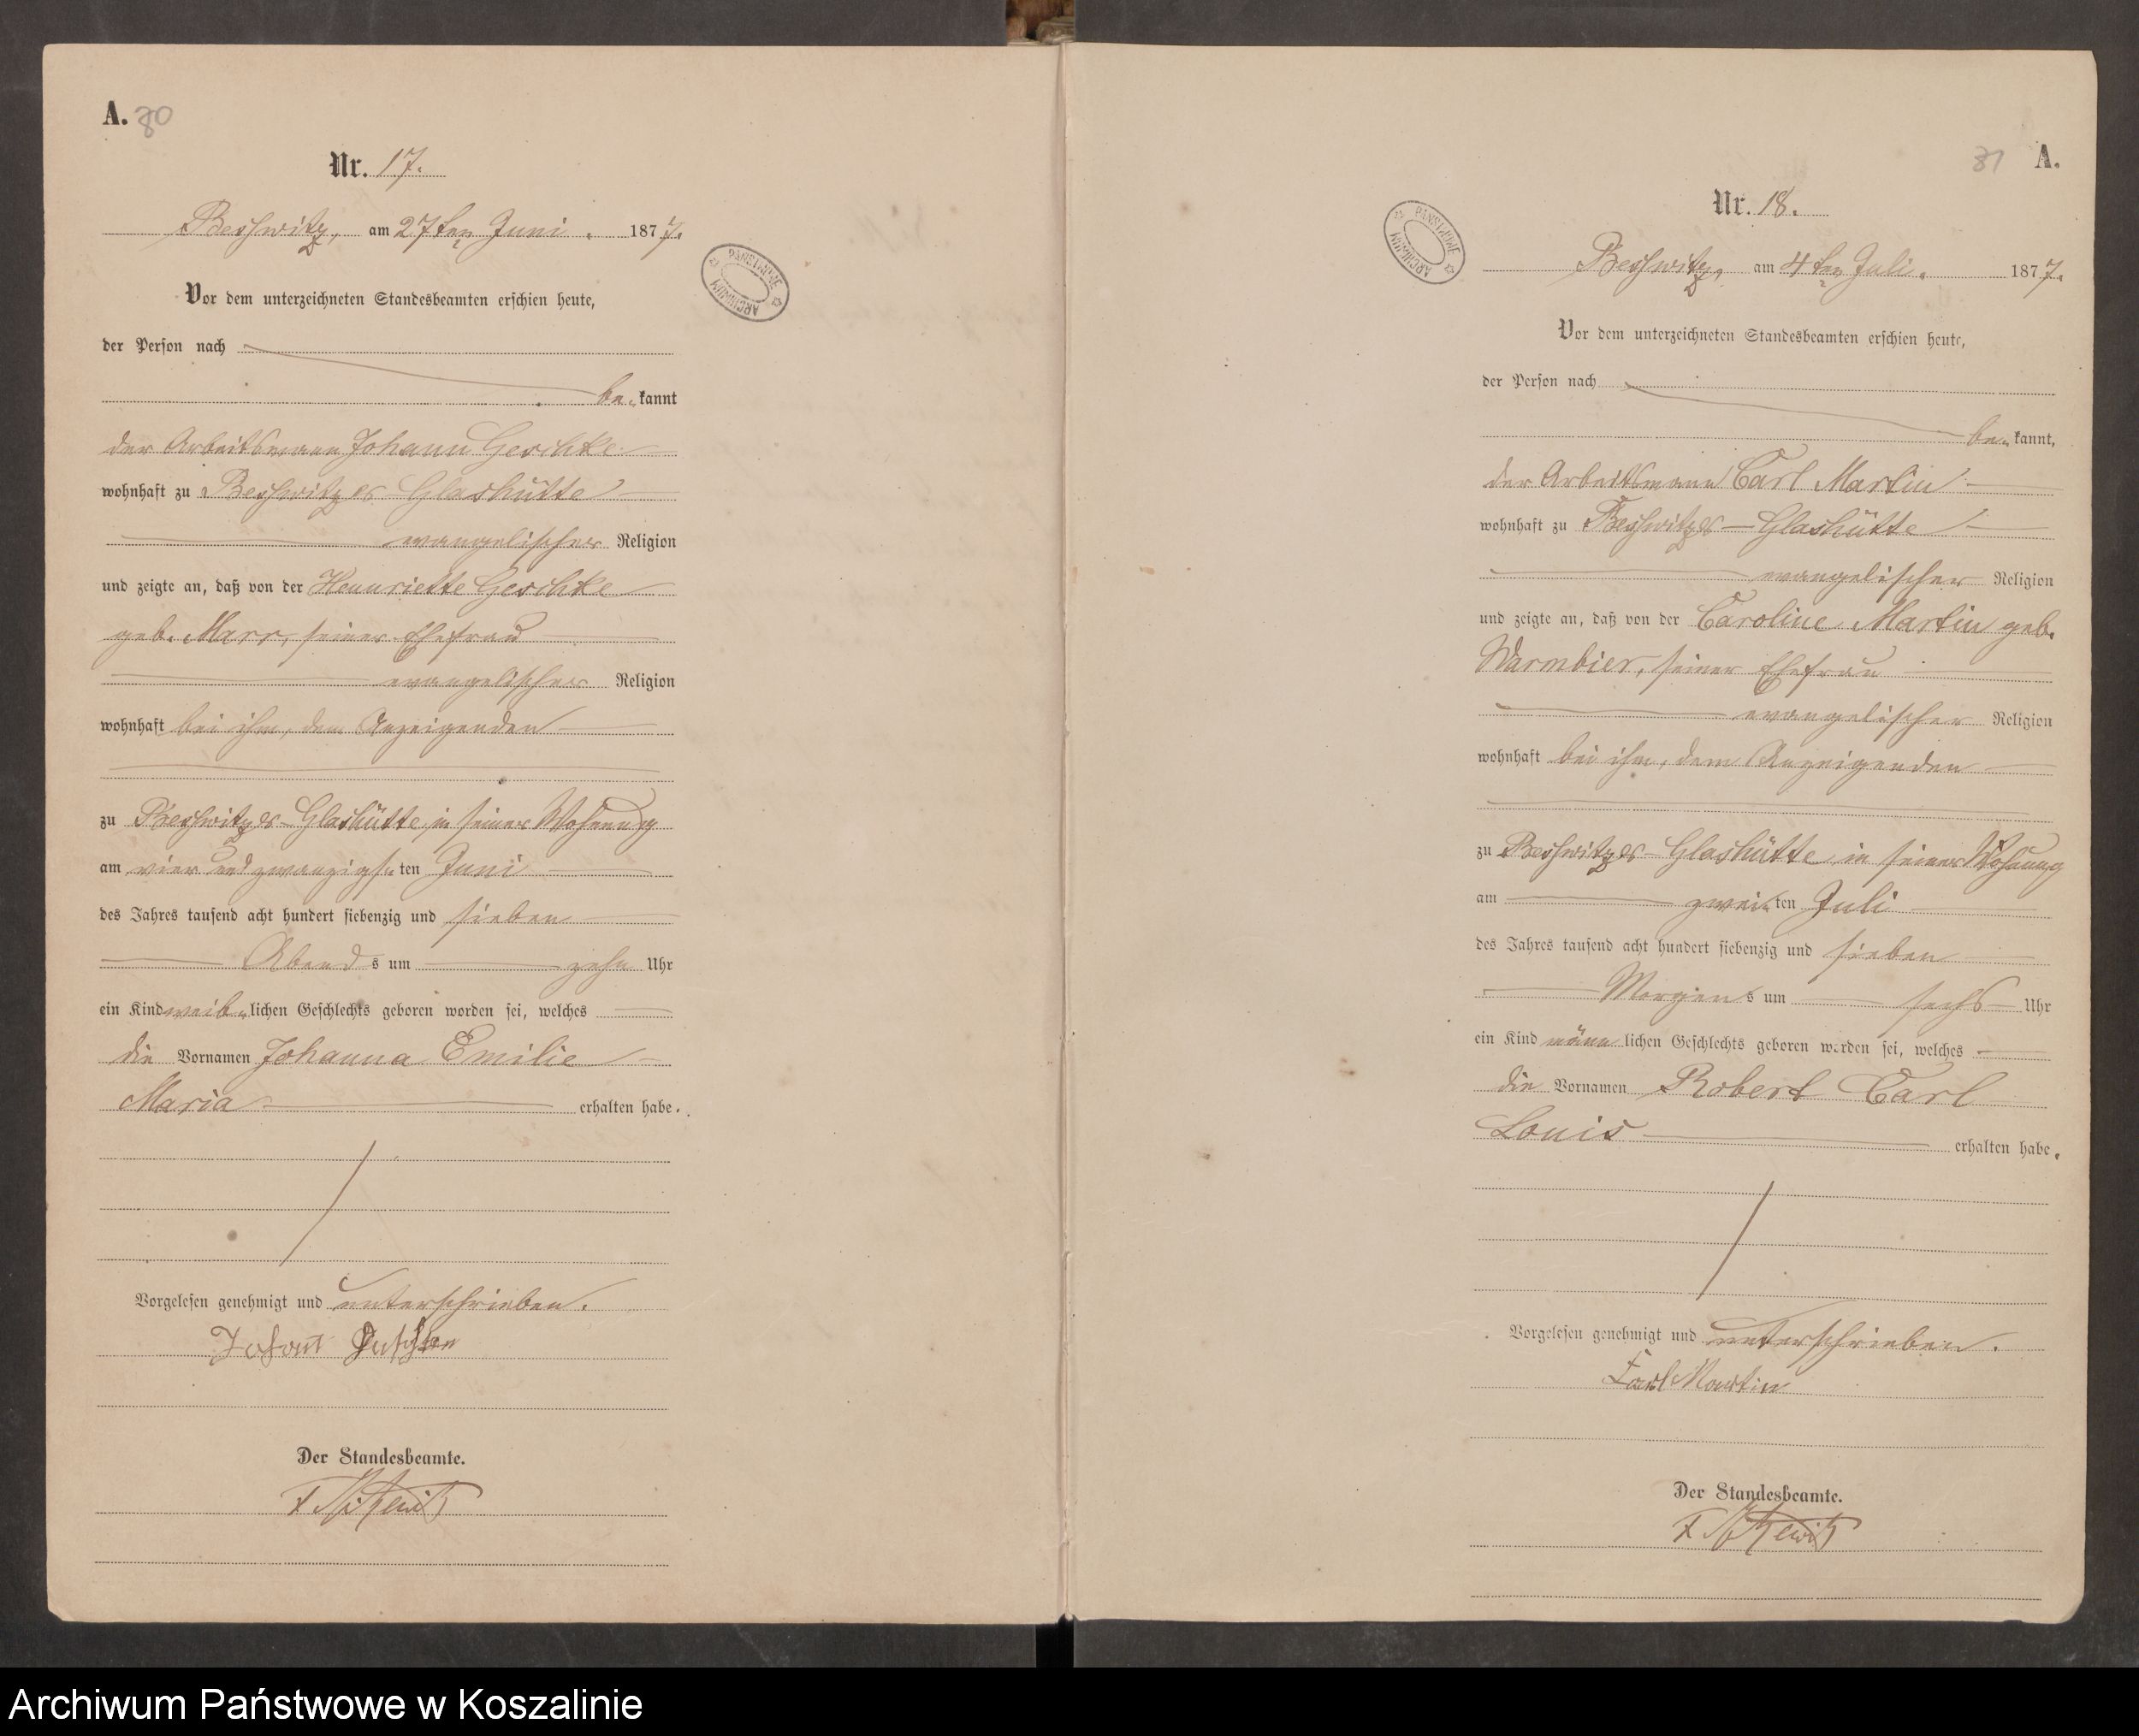 A. 80
Nr. 17.
Beßwitz, am 27ten Juni. 1877.
Vor dem unterzeichneten Standesbeamten erschien heute,
der Person nach
be- kannt
der Arbeitsmann Johann Geschke
wohnhaft zu Beßwitzer Glashütte
evangelischer Religion
und zeigte an, daß von der Henriette Geschke
geb. Marr, seiner Ehefrau
evangelischer Religion
wohnhaft bei ihm, dem Anzeigenden
zu Beßwitzer-Glashütte in seiner Wohnung
am vier und zwanzigs-ten Juni
des Jahres tausend acht hundert siebenzig und sieben
Abends um zehn Uhr
ein Kind weib-lichen Geschlechts geboren worden sei, welches
die Vornamen Johanna Emilie
Maria erhalten habe.
Vorgelesen genehmigt und unterschrieben.
Der Standesbeamte.
PAŃSTWOWE
ARCHIWUM
31 A.
Nr. 18.
Beßwitz, am 4ten Juli. 1877.
PAŃSTWOWE
ARCHIWUM
Vor dem unterzeichneten Standesbeamten erschien heute,
der Person nach
be- kannt,
der Arbeitsmann Carl Martin
wohnhaft zu Beßwitzer-Glashütte
evangelischer Religion
und zeigte an, daß von der Caroline Martin geb.
Warmbier, seiner Ehefrau
evangelischer Religion
wohnhaft bei ihm, dem Anzeigenden
zu Beßwitzer-Glashütte in seiner Wohnung
am zwei-ten Juli
des Jahres tausend acht hundert siebenzig und sieben
Morgens um sechs Uhr
ein Kind männlichen Geschlechts geboren worden sei, welches
die Vornamen Robert Carl
Louis erhalten habe.
Vorgelesen genehmigt und unterschrieben.
Carl Martin
Der Standesbeamte.
Archiwum Państwowe w Koszalinie